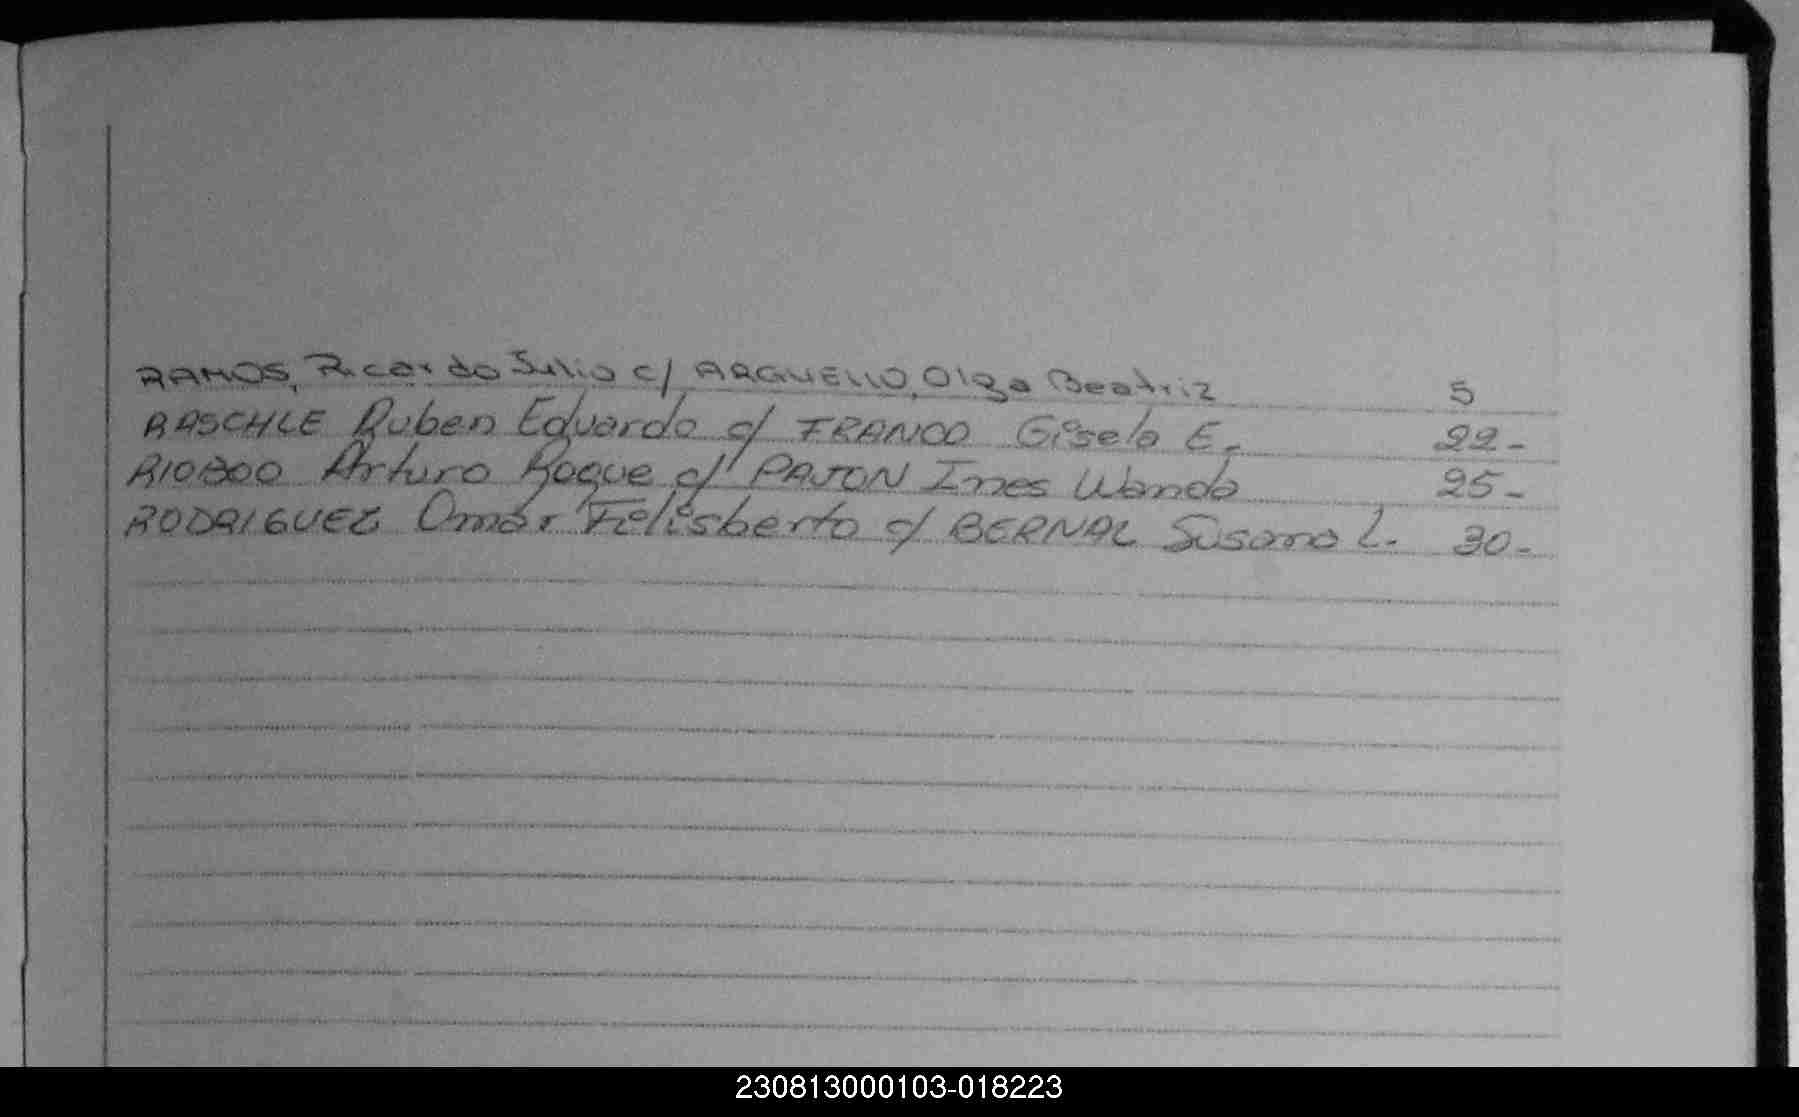 RAMOS, Ricardo Julio c/ ARGUELLO, Olga Beatriz 5
RASCHLE Ruben Eduardo c/ FRANCO Gisela E. 22-
RIOBOO Arturo Roque c/ PAJON Ines Wanda 25-
RODRIGUEZ Omar Felisberto c/ BERNAL Susana L. 30-
230813000103-018223